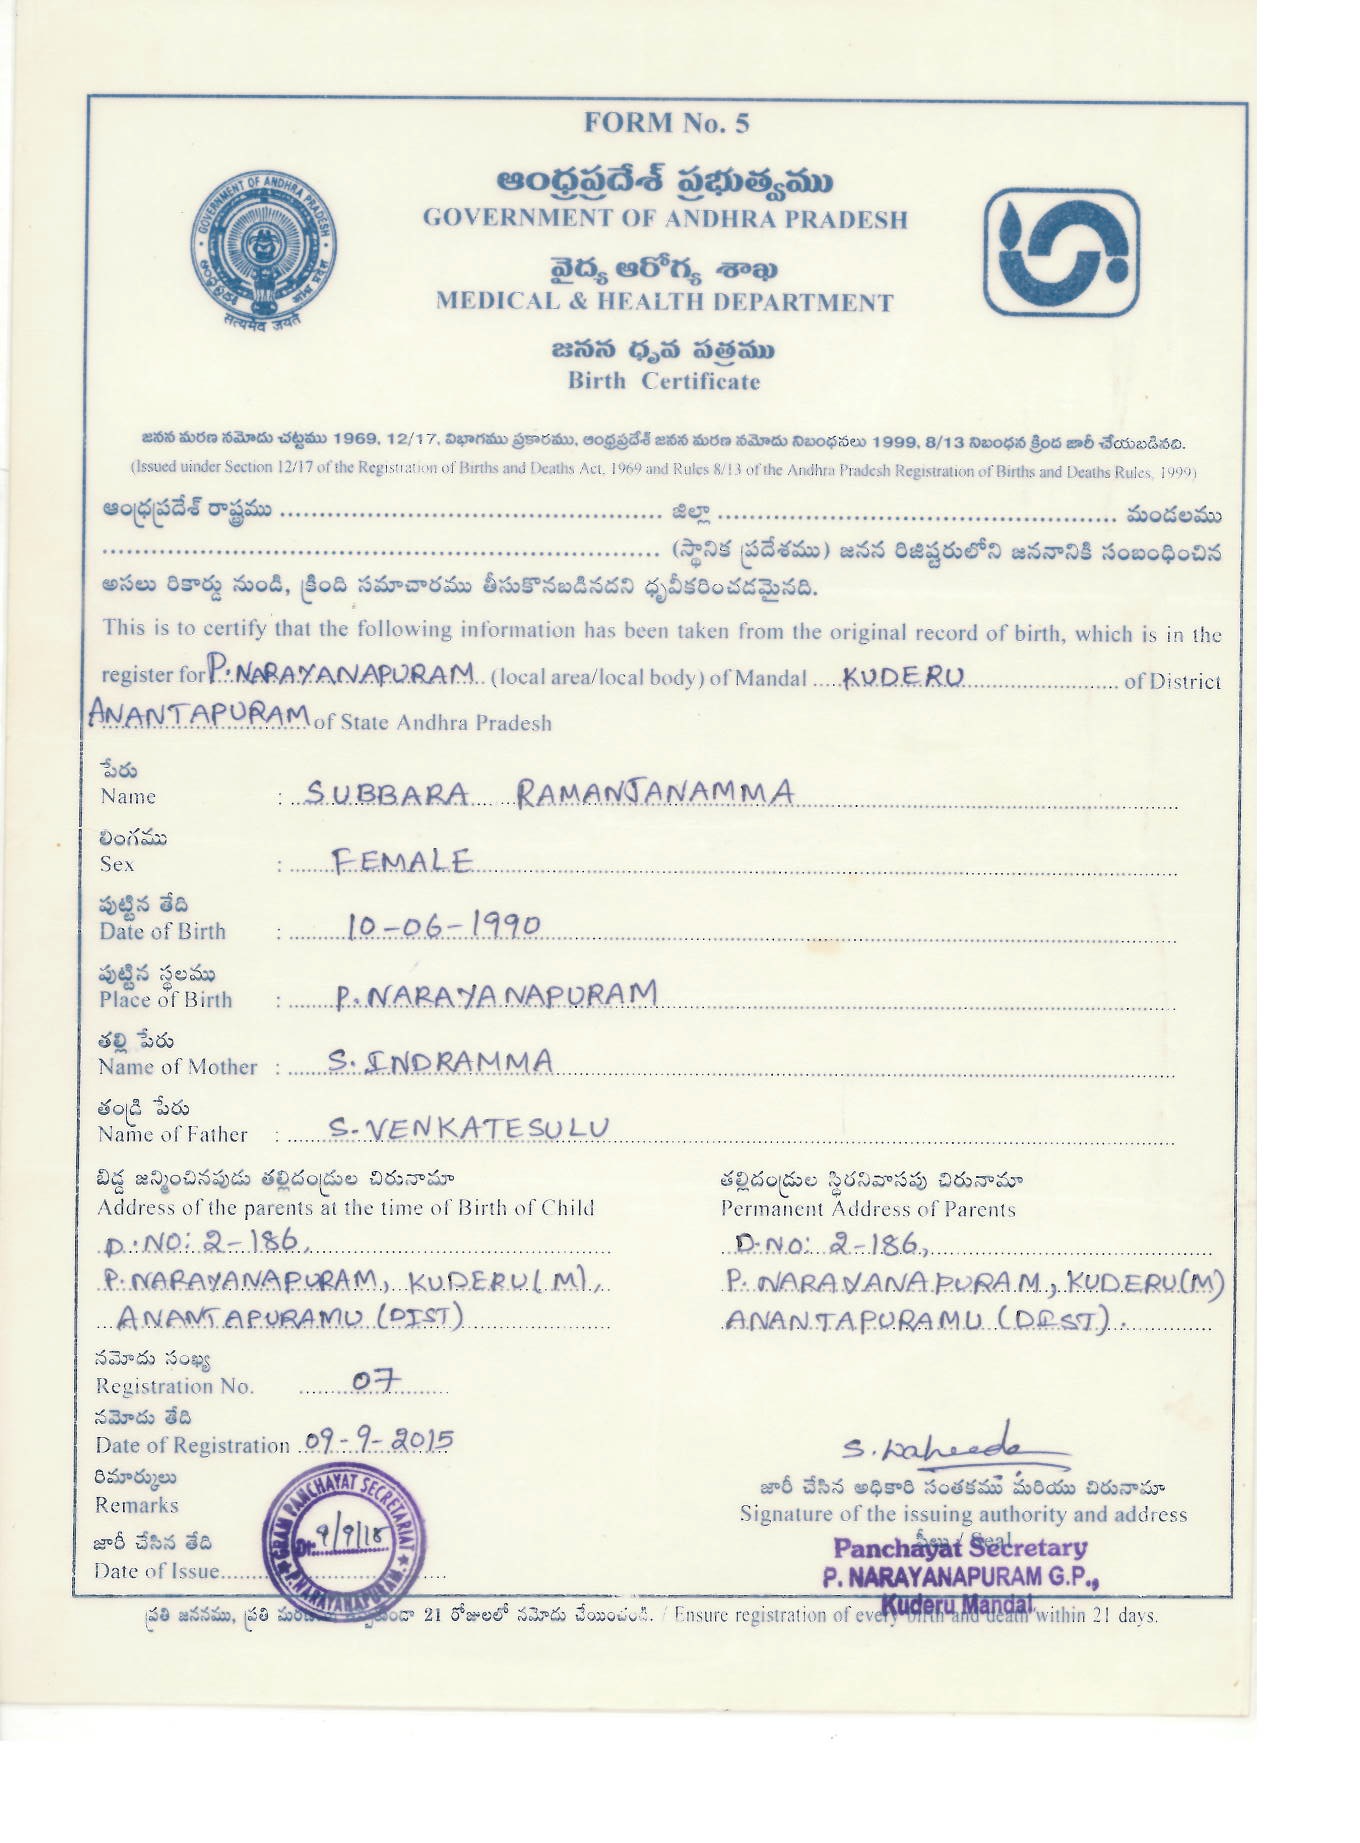 FORM No. 5
ఆంధ్రప్రదేశ్ ప్రభుత్వము
GOVERNMENT OF ANDHRA PRADESH
GOVERNMENT OF ANDHRA PRADESH
सत्यमेव जयते
వైద్య ఆరోగ్య శాఖ
MEDICAL & HEALTH DEPARTMENT
జనన ధృవ పత్రము
Birth Certificate
జనన మరణ నమోదు చట్టము 1969, 12/17, విభాగము ప్రకారము, ఆంధ్రప్రదేశ్ జనన మరణ నమోదు నిబంధనలు 1999, 8/13 నిబంధన క్రింద జారీ చేయబడినది.
(Issued uinder Section 12/17 of the Registration of Births and Deaths Act, 1969 and Rules 8/13 of the Andhra Pradesh Registration of Births and Deaths Rules, 1999)
ఆంధ్రప్రదేశ్ రాష్ట్రము ........ జిల్లా ........ మండలము
........ (స్థానిక ప్రదేశము) జనన రిజిష్టరులోని జననానికి సంబంధించిన
అసలు రికార్డు నుండి, క్రింది సమాచారము తీసుకొనబడినదని ధృవీకరించడమైనది.
This is to certify that the following information has been taken from the original record of birth, which is in the
register for P. NARAYANAPURAM (local area/local body) of Mandal KUDERU of District
ANANTAPURAM of State Andhra Pradesh
పేరు
Name : SUBBARA RAMANJANAMMA
లింగము
Sex : FEMALE
పుట్టిన తేది
Date of Birth : 10-06-1990
పుట్టిన స్థలము
Place of Birth : P. NARAYANAPURAM
తల్లి పేరు
Name of Mother : S. INDRAMMA
తండ్రి పేరు
Name of Father : S-VENKATESULU
బిడ్డ జన్మించినపుడు తల్లిదండ్రుల చిరునామా
Address of the parents at the time of Birth of Child
D.NO: 2-186,
P. NARAYANAPURAM, KUDERU(M),
ANANTAPURAMU (DIST)
తల్లిదండ్రుల స్థిరనివాసపు చిరునామా
Permanent Address of Parents
D.NO: 2-186,
P. NARAYANAPURAM, KUDERU(M)
ANANTAPURAMU (DIST).
నమోదు సంఖ్య
Registration No. 07
నమోదు తేది
Date of Registration 09-9-2015
రిమార్కులు
Remarks
జారీ చేసిన తేది
Date of Issue
GRAM PANCHAYAT SECRETARIAT
Dt. 9/9/15
P. NARAYANAPURAM
S. Waheeda
జారీ చేసిన అధికారి సంతకము మరియు చిరునామా
Signature of the issuing authority and address
సీలు / Seal
Panchayat Secretary
P. NARAYANAPURAM G.P.,
Kuderu Mandal
ప్రతి జననము, ప్రతి 21 రోజులలో నమోదు చేయించండి. / Ensure registration of every birth and death within 21 days.